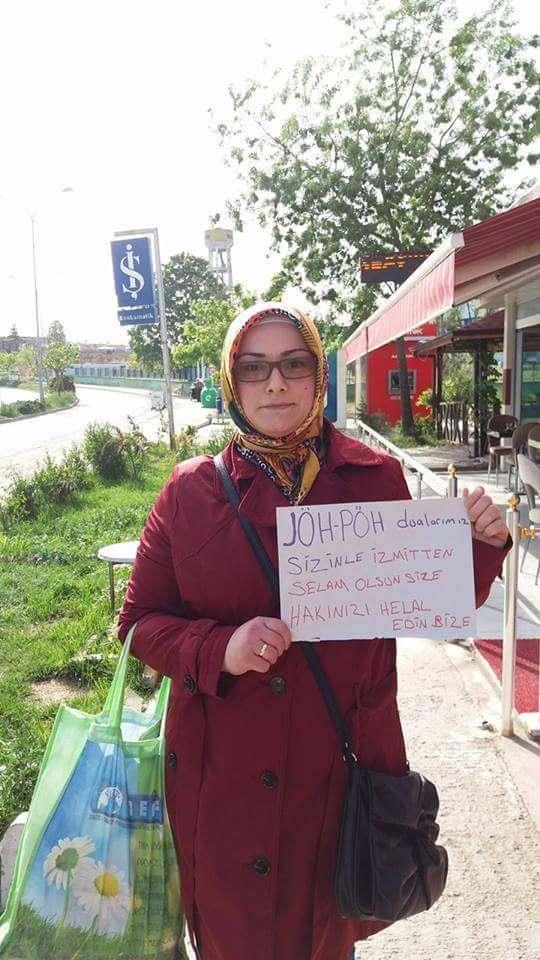 İŞ
Bankamatik
JÖH-PÖH dualarımız
SİZİNLE İZMİTTEN
SELAM OLSUN SİZE
HAKINIZI HELAL
EDİN BİZE